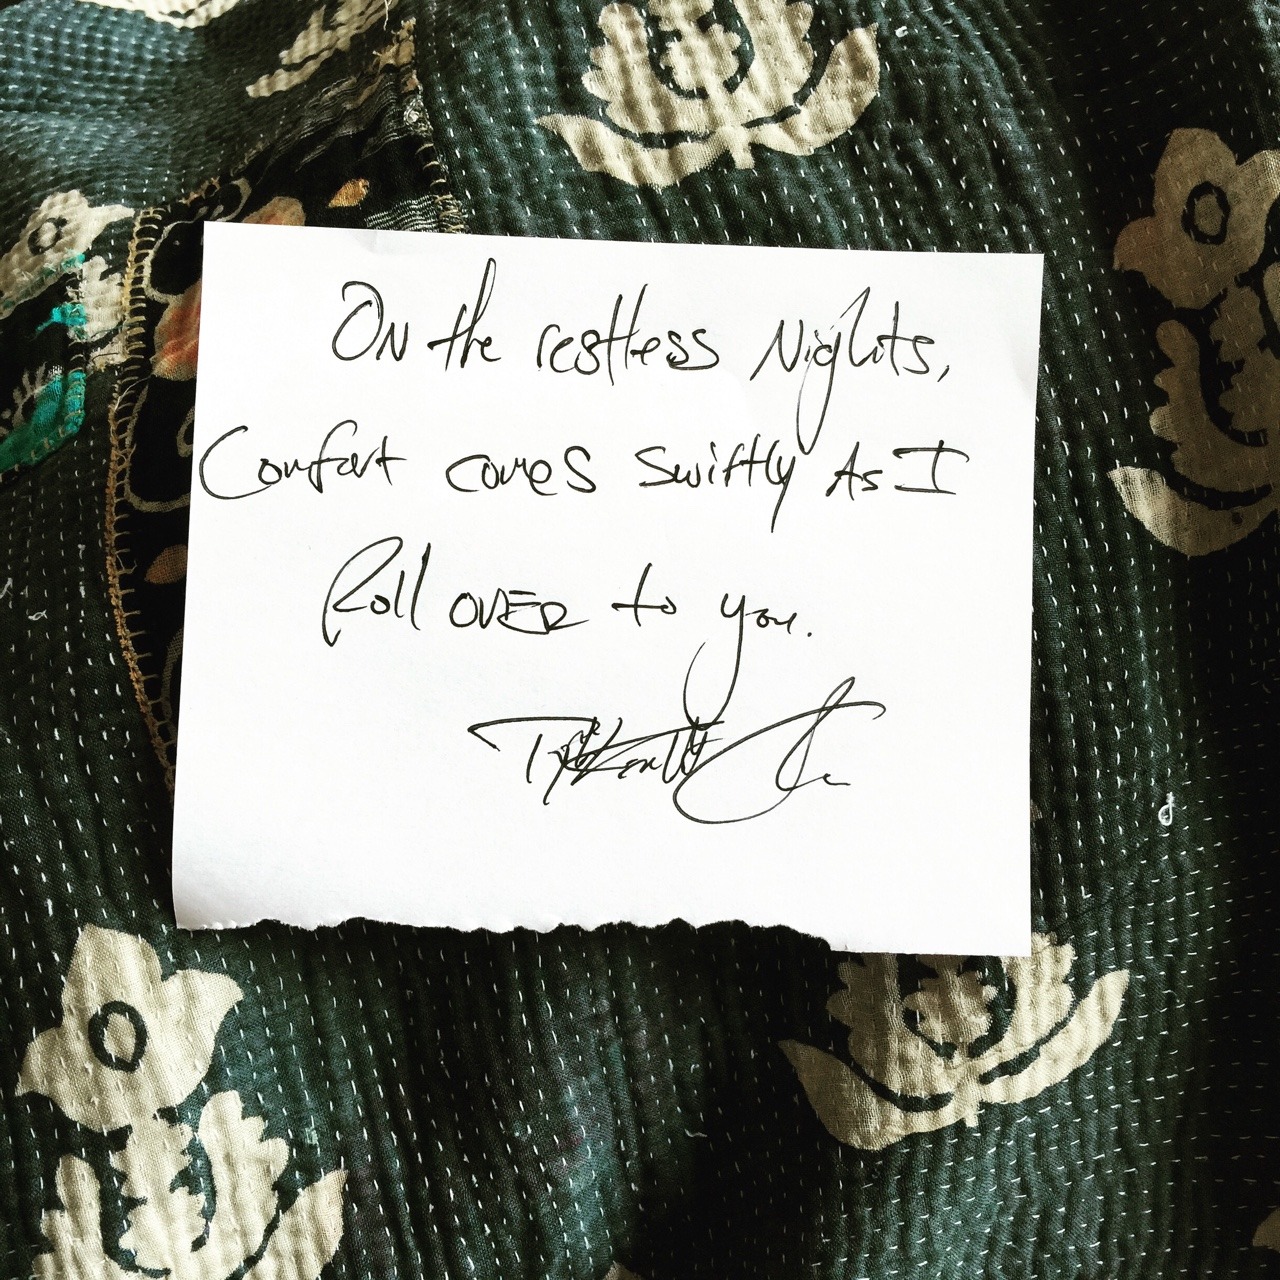 On the restless Nights,
Comfort comes swiftly As I
Roll OVER to you.